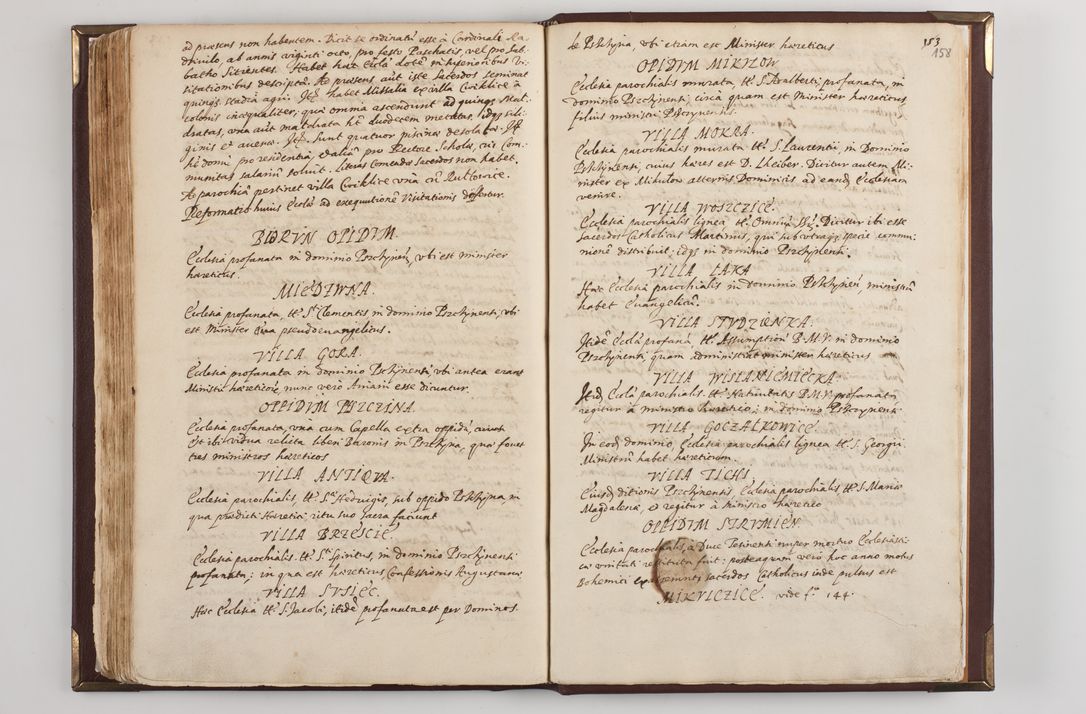 ad præsens non habentem. Dicit se ordinatũ esse à Cardinale Ra-
divilo, ab annis viginti octo, pro festo Paschatis, vel pro Sab-
batho Sitientes. Habet hæc Ecclã dotẽ in inferioribus Vi-
sitationibus descriptã. Ac præsens aũt iste Sacerdos seminat
quinq; stadia agri. Itẽ habet Missalia ex villa Cwiklice à
colonis inæqualiter, quæ omnia ascendunt ad quinq; Mal-
dratas, una aũt maldrata hẽt duodecem metretas, idq; sili-
ginis et avenæ. Itẽ sunt quatuor piscinæ desolatæ. Itẽ
hẽt domũ pro residentia, et aliã pro Rectore Scholæ, cui Com-
munitas salariũ solvit. Literas Comendæ Sacerdos non habet.
Ad parochiã pertinet villa Cwiklice unà cũ Rudowice.
Reformatio huius Ecclæ ad exequutionẽ Visitationis differtur.
BIORVN OPIDVM.
Ecclesia profanata in dominio Pszczynẽñ, ubi est minister
hæreticus.
MIEDZWNA.
Ecclesia profanata, tt. Sti Clementis in dominio Pszchinenti, ubi
est Minister pseudoevangelicus.
VILLA GORA.
Ecclesia profanata in dominio Pschinenti, ubi antea erant
Ministri hæretici, nunc verò Ariani esse dicuntur.
OPPIDVM PSZCZINA.
Ecclesia profanata, una cum Capella extra oppidũ,
Et ibi vidua relicta liberi Baronis in Pszchyna, quæ fovet
tres ministros hæreticos
VILLA ANTIQVA.
Ecclesia parochialis, tt. Stæ Hedvigis, sub oppido Pschyna in
qua prædicti Hæretici ritu suo sacra faciunt
VILLA BRZESCIE.
Ecclesia parochialis tt. Sti Spiritus, in dominio Pszchinenti
profanata: in qua est hæreticus Confessionis Augustanæ
VILLA SVSIEC.
Hæc Ecclesia tt. S. Jacobi, itidẽ profanata est per Dominos
de Pschyna, ubi etiam est Minister hæreticus
153
158
OPIDVM MIKULOW
Ecclesia parochialis murata, tt. S. Adalberti, profanata, in
dominio Pszchynenti, circa quam est Minister hæreticus,
filius ministri Pszczynensis.
VILLA MOKRA.
Ecclesia parochialis murata tt. S. Laurentii, in Dominio
Pschynenti, cuius hæres est D. Lheiber. Dicitur autem Mi-
nister ex Mikulow alternis Dominicis ad eandẽ Ecclesiam
venire.
VILLA WOSZCZICE.
Ecclesia parochialis lignea tt. Omniũ SSrũ. Dicitur ibi esse
Sacerdos Catholicus Martinus, qui sub utraq; specie commu-
nionẽ distribuit, idq; in dominio Pszchynenti.
VILLA LAKA
Hæc Ecclesia parochialis in dominio Pschyneñ, ministrũ
habet Evangelicũ.
VILLA STVDZIENKA.
Itidẽ Ecclã profanã, tt. Assumptionis B.M.V. in dominio
Pszchynenti quam administrat minister hæreticus
VILLA WISLANIEMIECKA.
Itidẽ Ecclã parochialis tt. Nativitatis B.M.V. profanata
regitur à ministro hæretico, in dominio Pszczynenti
VILLA GOCZALKOWICE.
In eodẽ dominio, Ecclesia parochialis lignea tt. S. Georgii
Ministrũ habet hæreticum.
VILLA TICHI.
Eiusdẽ ditionis Pszchynensis Ecclesia parochialis tt. S. Mariæ
Magdalenæ, et regitur à ministro hæretico
OPPIDVM STRUMIEN
Ecclesia parochialis à Duce Tesinenti nuper mortuo Ecclesiasti-
cæ unitati restituta fuit: posteaquam verò hoc anno motus
Bohemici sacerdos Catholicus inde pulsus est
MIKVLCZICE. vide fo. 144.